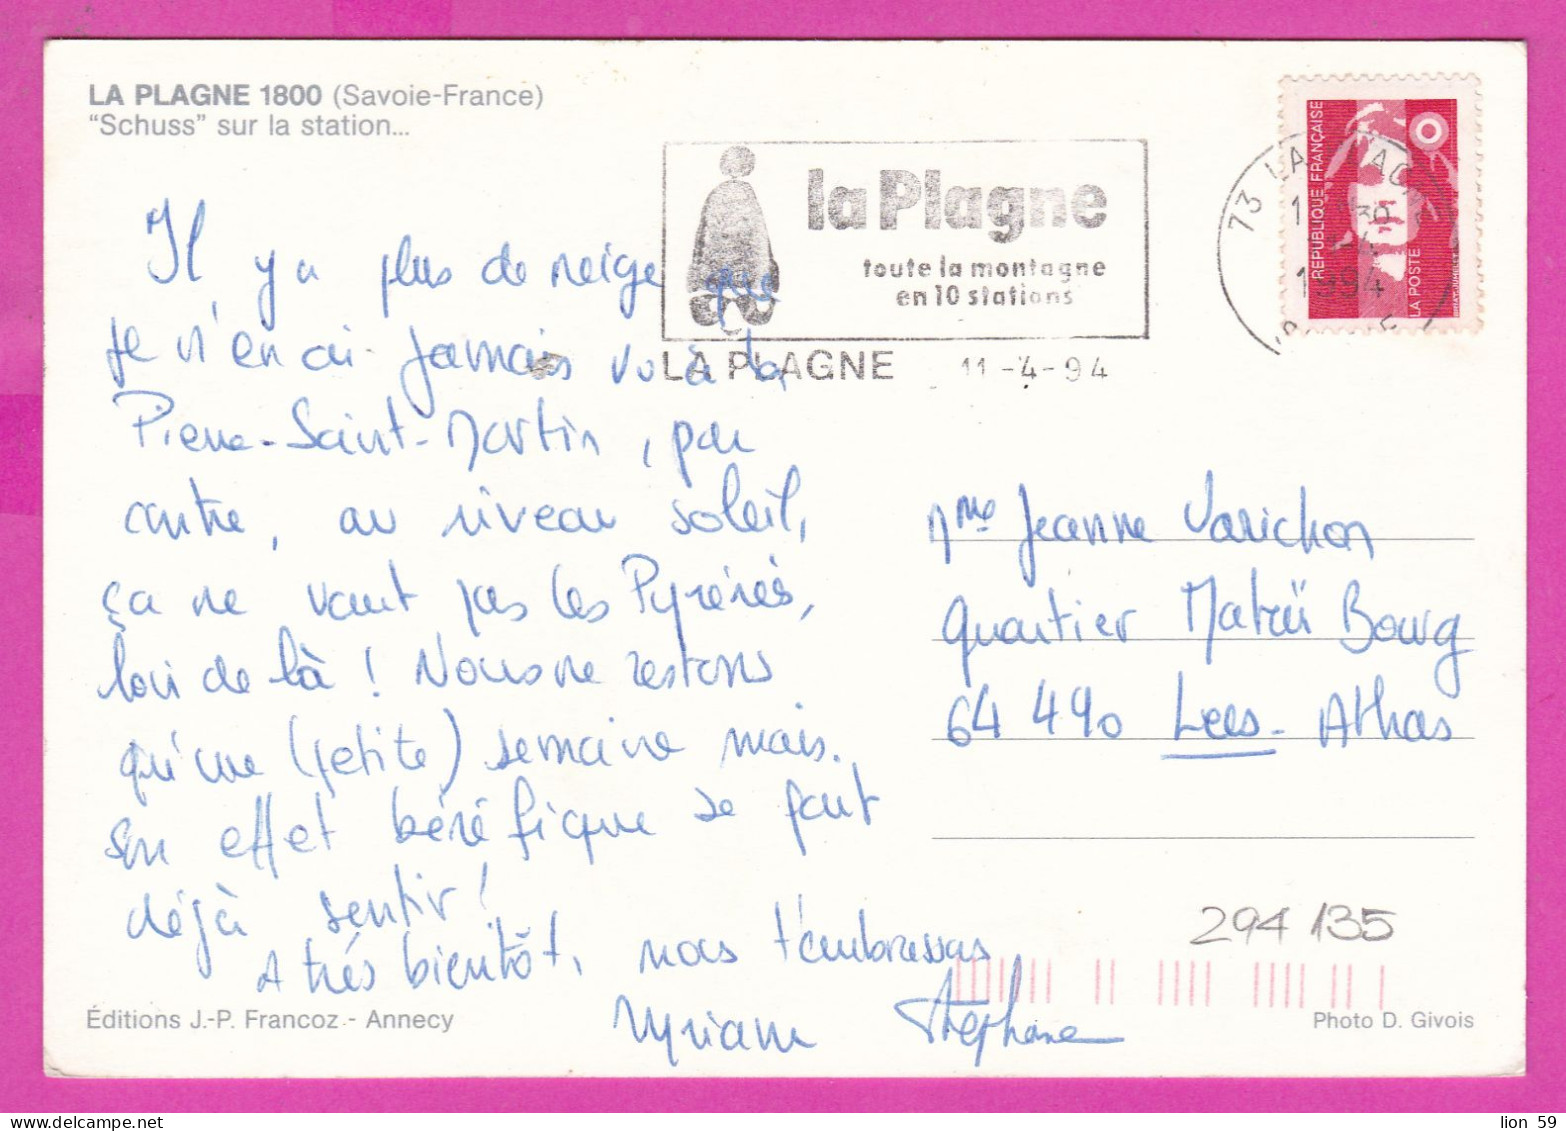 LA PLAGNE 1800 (Savoie-France)
"Schuss" sur la station...
la Plagne
toute la montagne
en 10 stations
LA PLAGNE 11-4-94
73 LA
1994
RÉPUBLIQUE FRANÇAISE
LA POSTE
Il y a plus de neige que
je n'en ai jamais vu à la
Pierre-Saint-Martin, par
contre, au niveau soleil,
ça ne vaut pas les Pyrénés,
loin de là ! Nous ne restons
qu'une (petite) semaine mais
son effet bénéfique se faut
déjà sentir !
A très bientôt, nous t'embrassons
Myriam Stéphane
Mme Jeanne Varichon
Quartier Matreü Bourg
64 490 Lees-Athas
294 135
Éditions J.-P. Francoz - Annecy
Photo D. Givois
lion 59